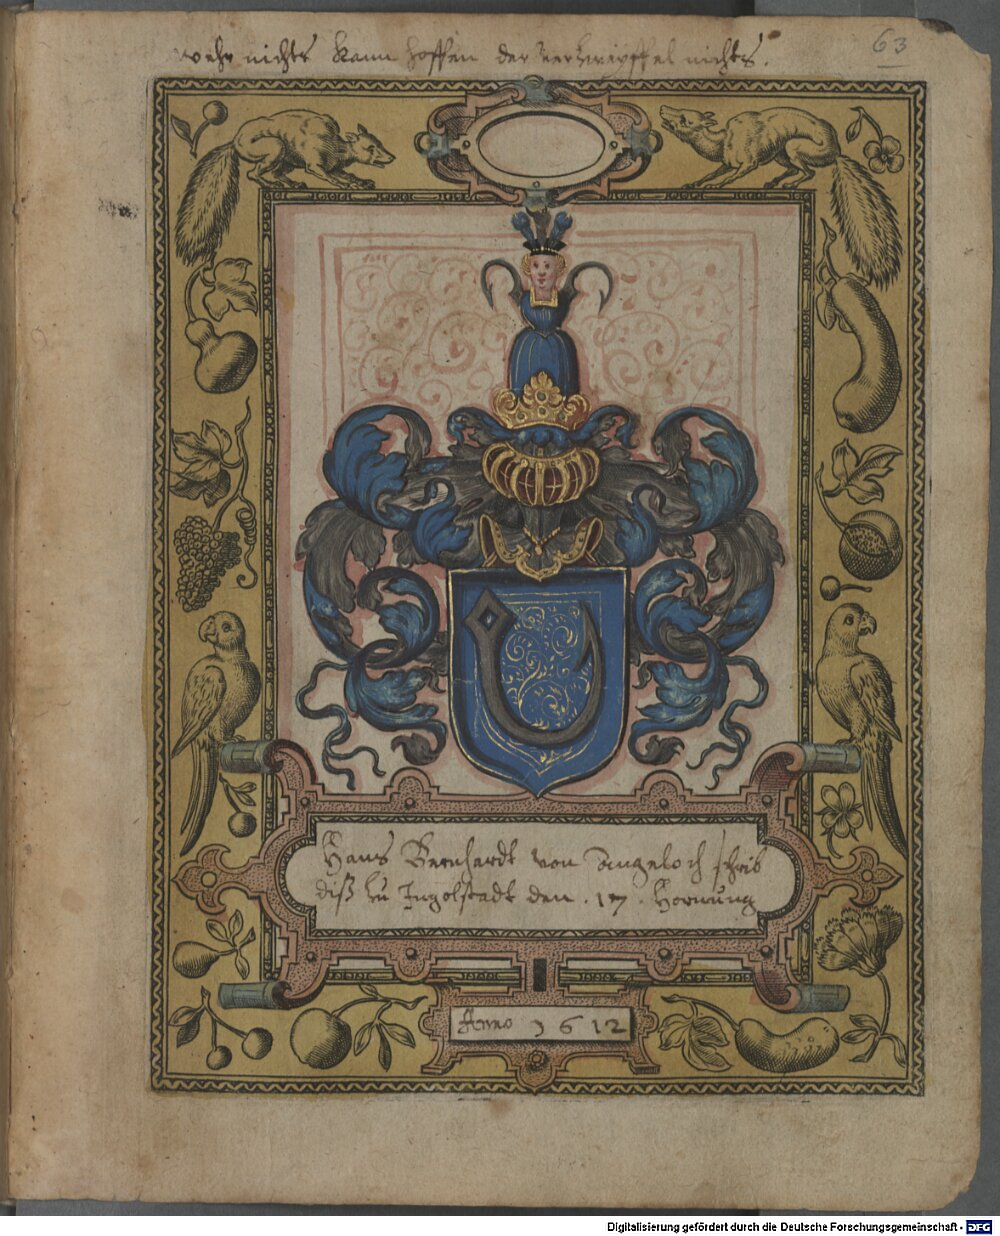 wehr nichts kann hoffen der verzweyffel nichts.
63
Hans Bernhardt von Angeloch schrib
diß zu Ingolstadt den . 17 . Hornung
Anno 1612
Digitalisierung gefördert durch die Deutsche Forschungsgemeinschaft - DFG